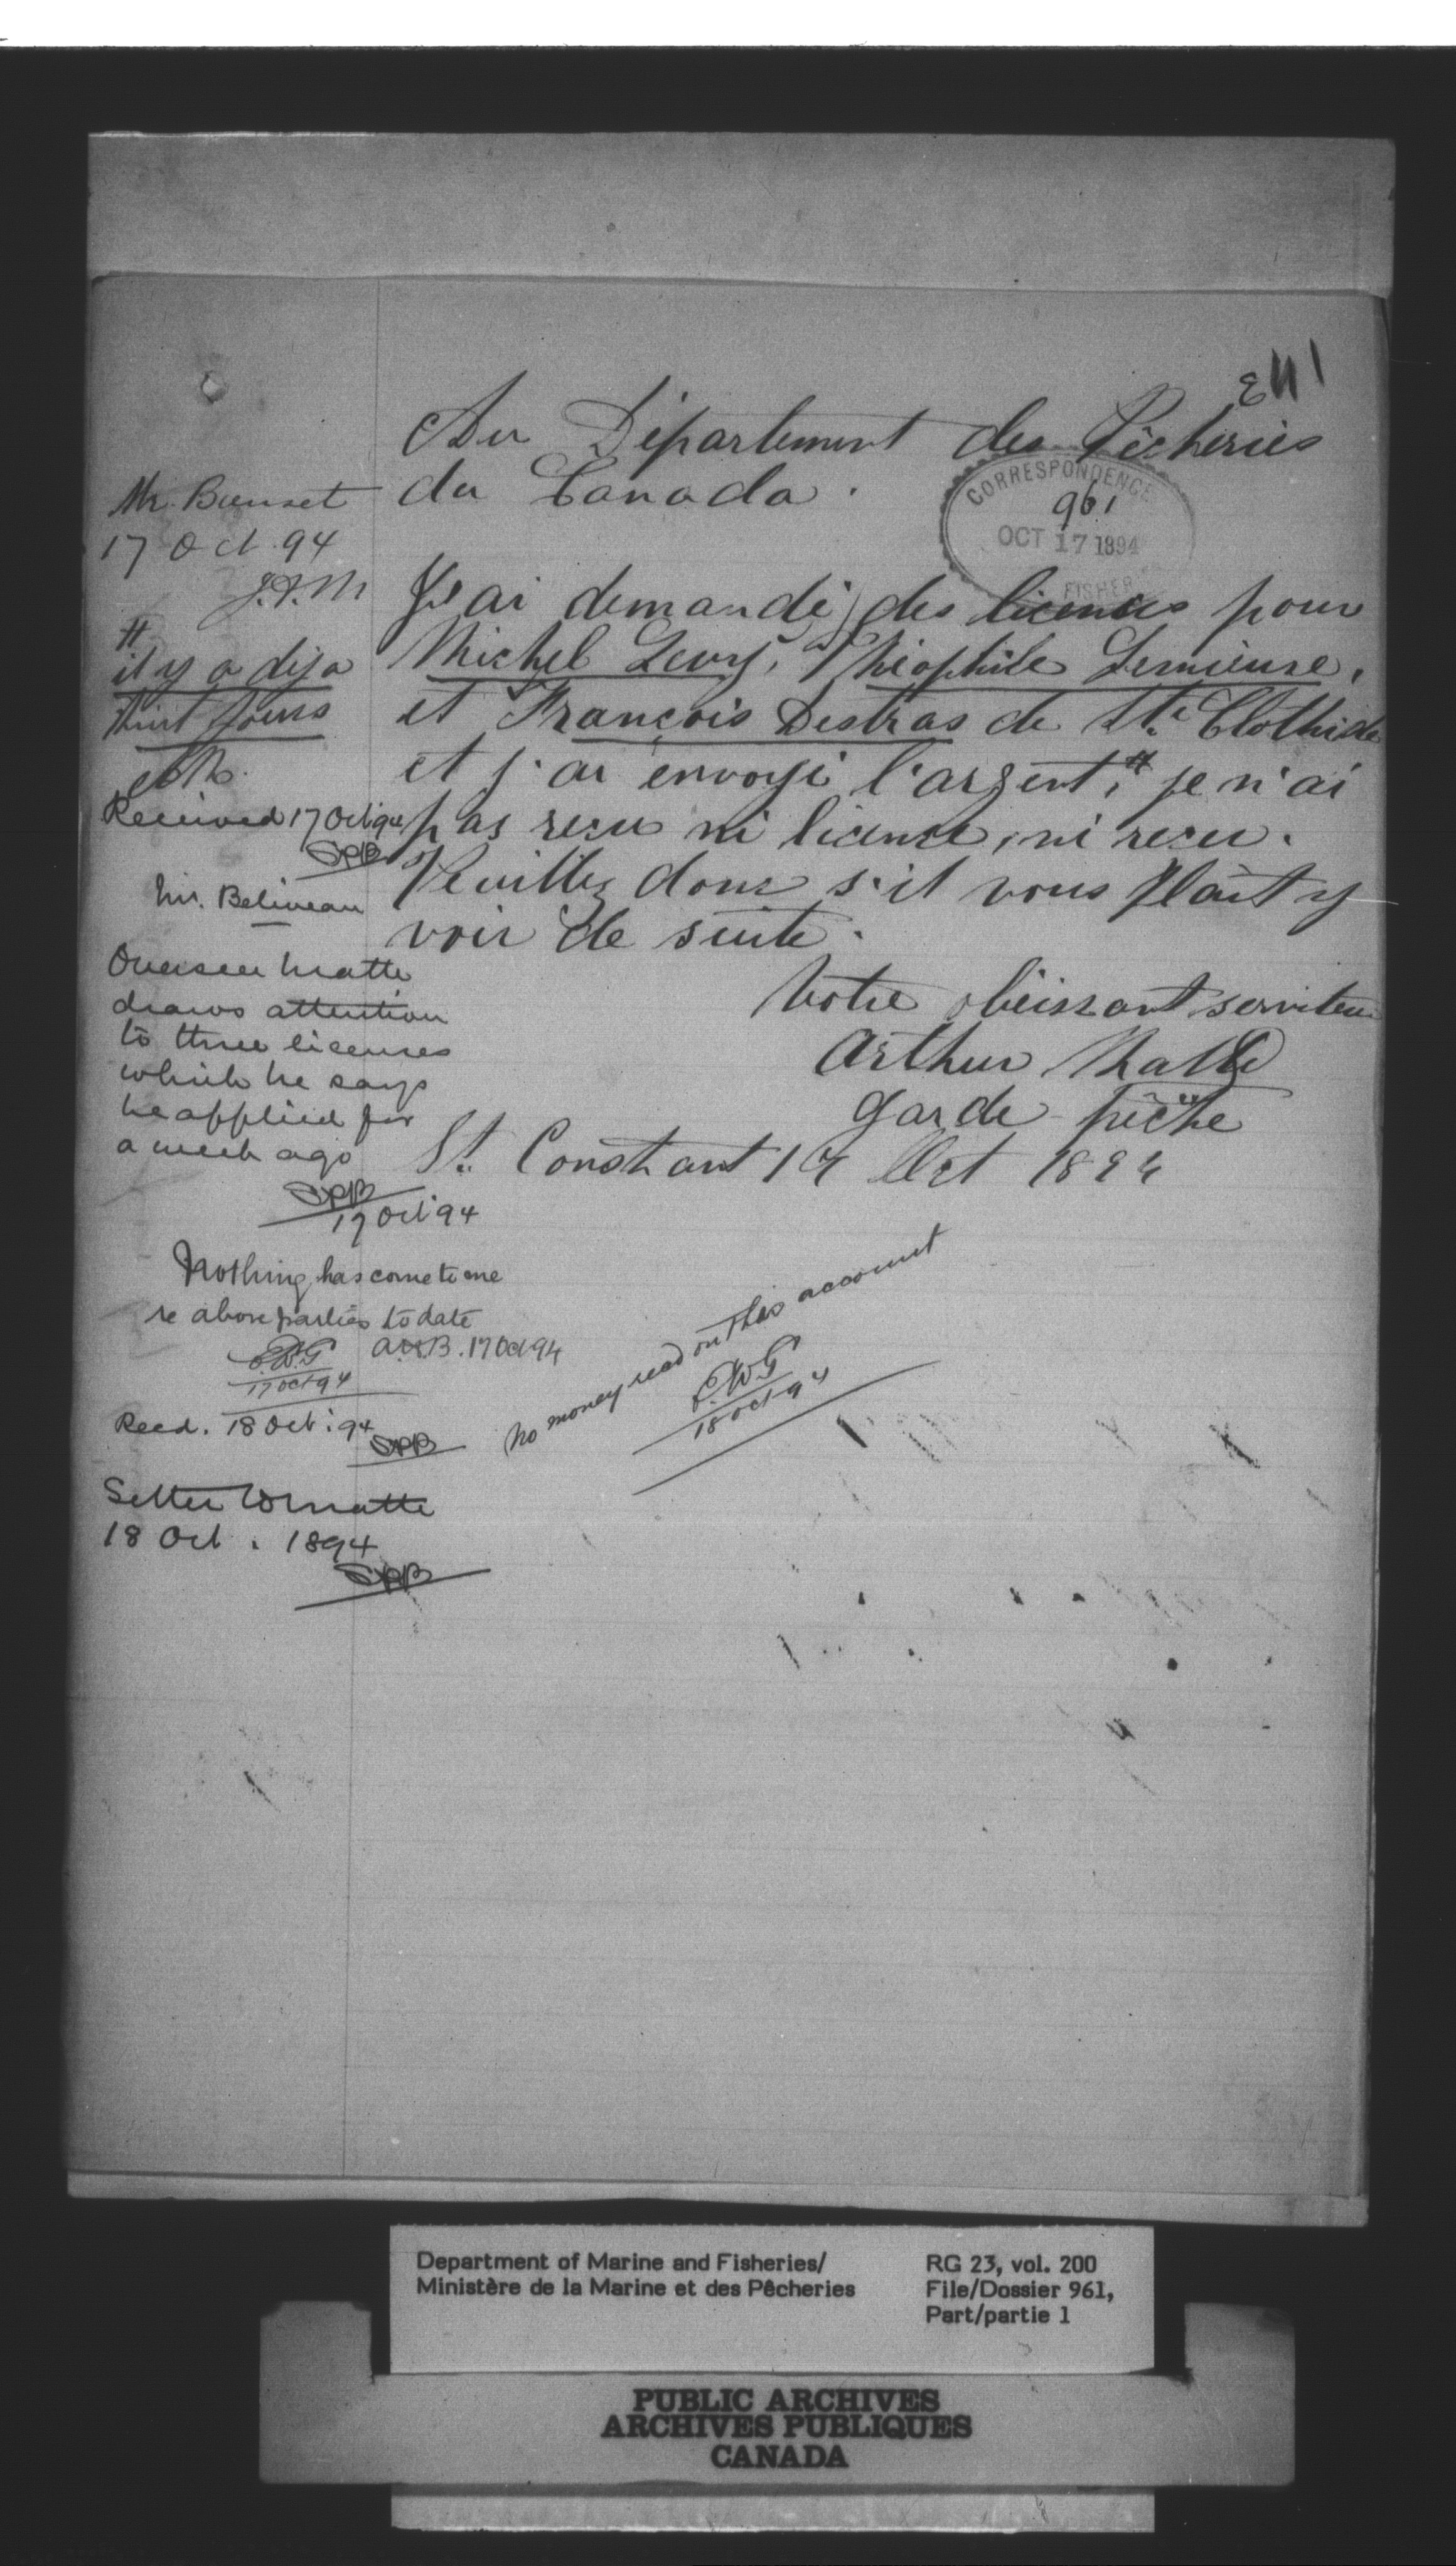 E 411
Au Département des Pêcheries
du Canada.
CORRESPONDENCE
961
OCT 17 1894
FISHER
J'ai demandé des licences pour
Michel Levy, Théophile Lemieuse,
et François Destras de Ste Clothide
et j'ai envoyé l'argent, # je n'ai
pas reçu ni licence, ni reçu.
Veuillez donc s'il vous plait y
voir de suite.
Votre obéissant serviteur
Arthur Matte
Garde pêche
St. Constant 14 Oct 1894
Mr. Bunset
17 Oct. 94
J.F.M
#
il y a déja
huit jours
Received 17 Oct 94
SPB
Mr. Beliveau
Overseer Matte
draws attention
to three licenses
which he says
he applied for
a week ago
SPB
17 Oct 94
Nothing has come to me
re above parties to date
A.B. 17 Oct 94
E.W.G
17 Oct 94
No money recd on this account
E.W.G
18 Oct 94
Recd. 18 Oct. 94
SPB
Letter to Matte
18 Oct. 1894
SPB
Department of Marine and Fisheries/
Ministère de la Marine et des Pêcheries
RG 23, vol. 200
File/Dossier 961,
Part/partie 1
PUBLIC ARCHIVES
ARCHIVES PUBLIQUES
CANADA